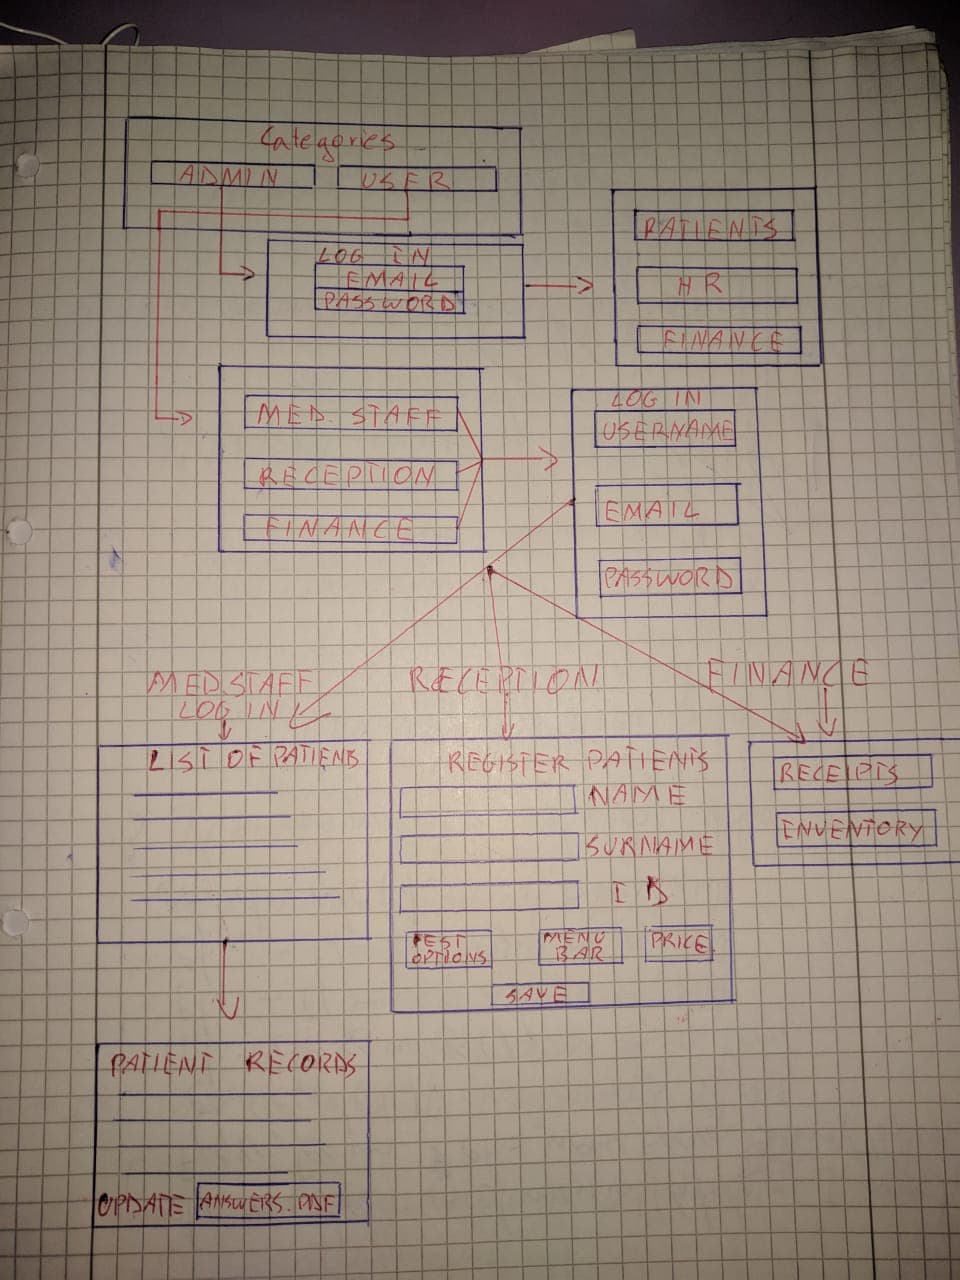 Categories
ADMIN USER
LOG IN
EMAIL
PASSWORD
PATIENTS
HR
FINANCE
MED. STAFF
RECEPTION
FINANCE
LOG IN
USERNAME
EMAIL
PASSWORD
MED.STAFF
LOG IN
RECEPTION
FINANCE
LIST OF PATIENS
REGISTER PATIENTS
NAME
SURNAME
ID
TEST
OPTIONS
MENU
BAR
PRICE
SAVE
RECEIPTS
ENVENTORY
PATIENT RECORDS
UPDATE ANSWERS.PDF